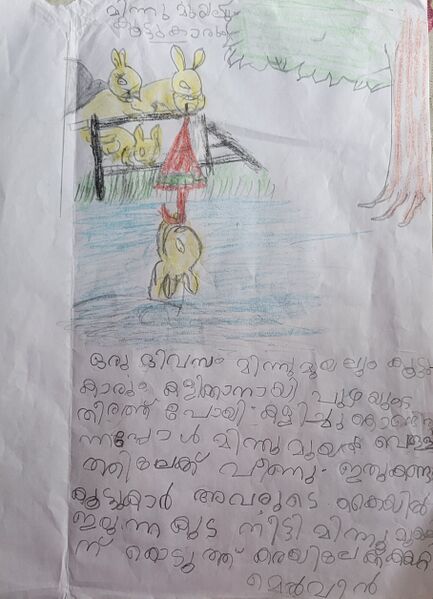 മിന്നു മുയലും
കൂട്ടുകാരും
ഒരു ദിവസം മിന്നുമുയലും കൂട്ടു
കാരും കളിക്കാനായി പുഴയുടെ
തീരത്ത് പോയി. കളിച്ചു കൊണ്ടിരു
ന്നപ്പോൾ മിന്നുമുയൽ വെള്ള
ത്തിലേക്ക് വീണു. ഇതുകണ്ട
കൂട്ടുകാർ അവരുടെ കൈയിൽ
ഇരുന്ന കുട നീട്ടി മിന്നു മുയലി
ന് കൊടുത്ത് കരയിലേക്ക്
മെൽവിൻ